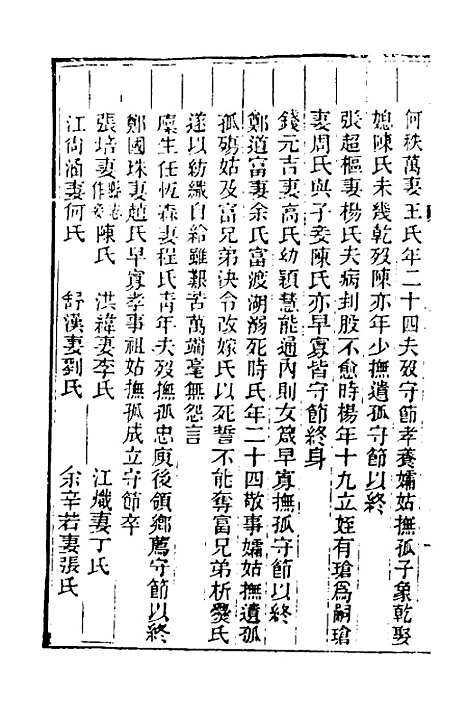 何秩萬妻王氏年二十四夫歿守節孝養孀姑撫孤子象乾娶
媳陳氏未幾乾歿陳亦年少撫遺孤守節以終
張超樞妻楊氏夫病刲股不愈時楊年十九立姪有瑲爲嗣瑲
妻周氏與子妾陳氏亦早寡皆守節終身
錢元吉妻高氏幼穎慧能通內則女箴早寡撫孤守節以終
鄭道富妻余氏富渡湖溺死時氏年二十四敬事孀姑撫遺孤
孤殤姑及富兄弟決令改嫁氏以死誓不能奪富兄弟析爨氏
遂以紡織自給雖艱苦萬端毫無怨言
廩生任恆森妻程氏靑年夫歿撫孤忠庾後領鄉薦守節以終
鄭國珠妻趙氏早寡孝事祖姑撫孤成立守節卒
張培妻陳氏 洪褘妻李氏 江熾妻丁氏
江尙涵妻何氏 舒漢妻劉氏 余辛若妻張氏